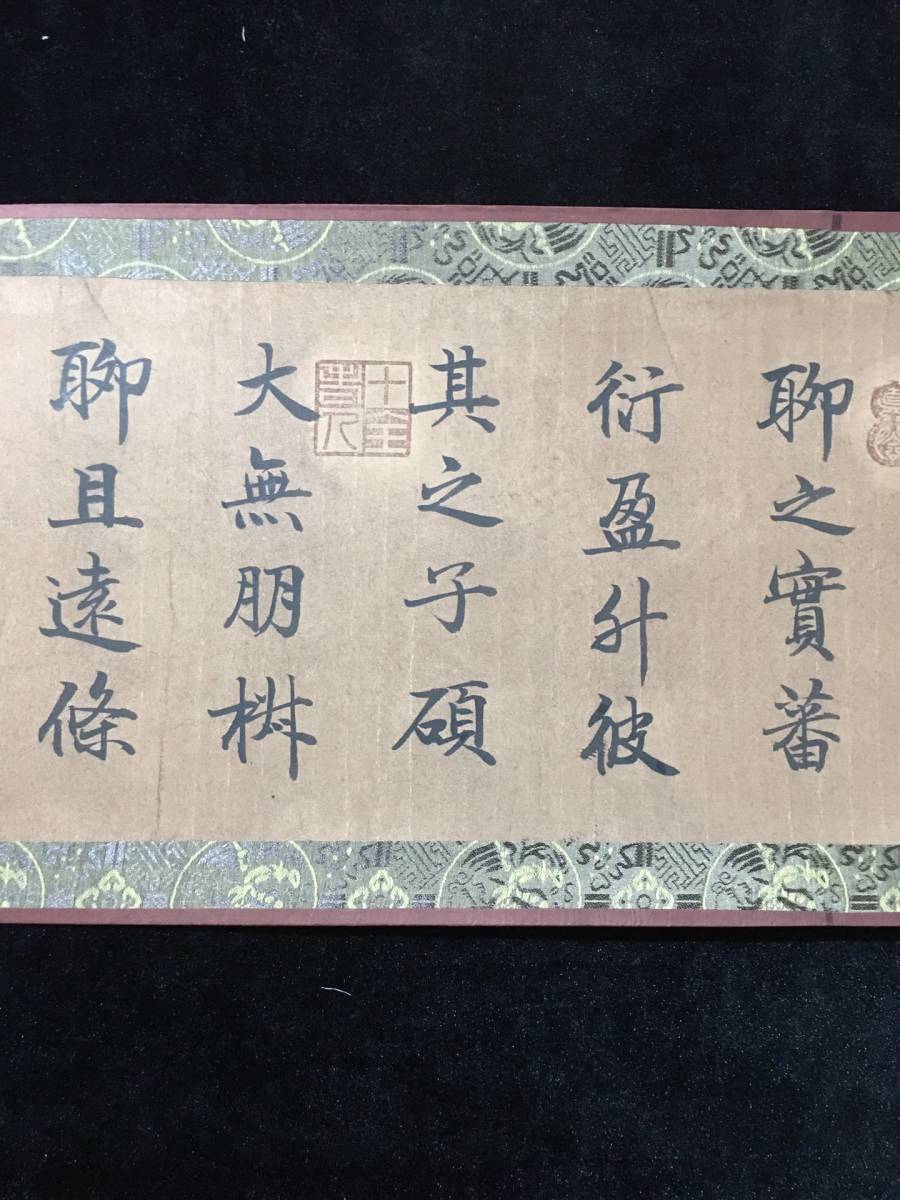 聊之實蕃
衍盈升彼
其之子碩
十全老人
大無朋椒
聊且遠條